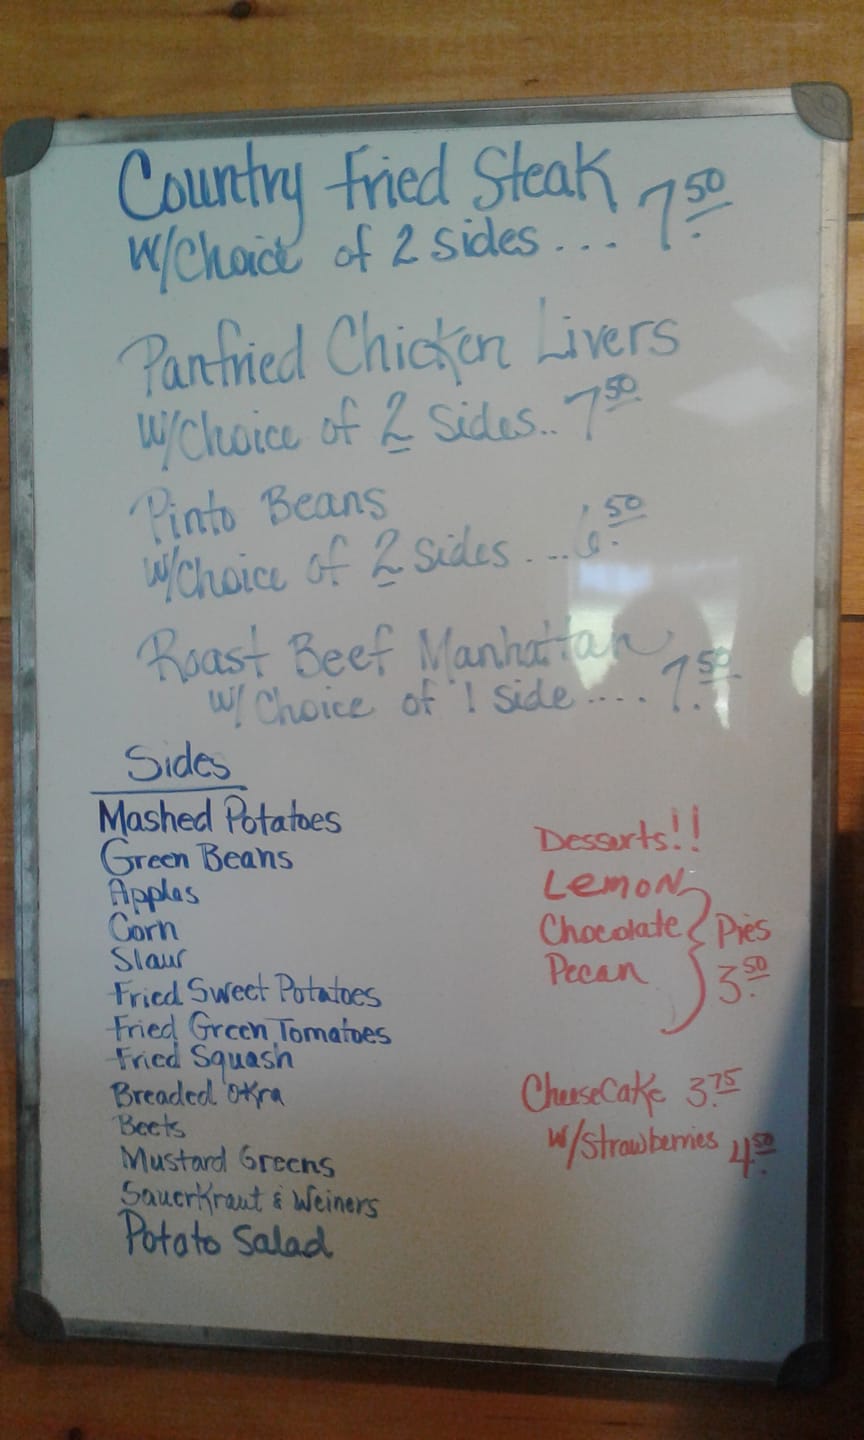 Country Fried Steak
W/Choice of 2 sides... 7.50
Panfried Chicken Livers
W/Choice of 2 Sides.. 7.50
Pinto Beans
W/Choice of 2 Sides.... 6.50
Roast Beef Manhattan
W/ Choice of 1 side.... 7.50
Sides
Mashed Potatoes
Green Beans
Apples
Corn
Slaw
Fried Sweet Potatoes
Fried Green Tomatoes
Fried Squash
Breaded Okra
Beets
Mustard Greens
SauerKraut & Weiners
Potato Salad
Desserts!!
Lemon
Chocolate
Pecan
Pies
3.50
CheeseCake 3.75
W/Strawberries 4.50